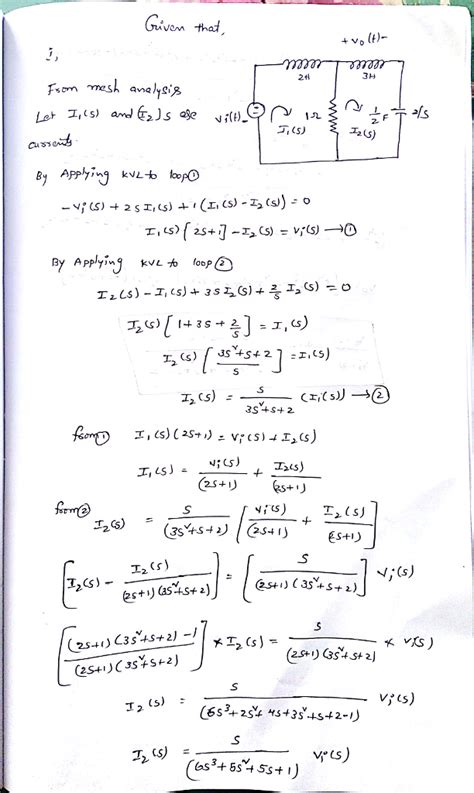 Given that,
+ v₀(t) -
1,
2H
3H
From mesh analysis
Let I₁(s) and (I₂)s are
vᵢ(t)
I₁(s)
1Ω
I₂(s)
1/2 F
2/s
currents
By Applying KVL to loop①
-Vᵢ(s) + 2s I₁(s) + 1(I₁(s) - I₂(s)) = 0
I₁(s)[2s+1] - I₂(s) = Vᵢ(s) → ①
By Applying KVL to loop②
I₂(s) - I₁(s) + 3s I₂(s) + 2/s I₂(s) = 0
I₂(s)[1+3s+2/s] = I₁(s)
I₂(s)[(3s²+s+2)/s] = I₁(s)
I₂(s) = s/(3s²+s+2) (I₁(s)) → ②
from① I₁(s)(2s+1) = Vᵢ(s) + I₂(s)
I₁(s) = Vᵢ(s)/(2s+1) + I₂(s)/(2s+1)
from② I₂(s) = s/(3s²+s+2) [Vᵢ(s)/(2s+1) + I₂(s)/(2s+1)]
[I₂(s) - I₂(s)/((2s+1)(3s²+s+2))] = [s/((2s+1)(3s²+s+2))] Vᵢ(s)
[((2s+1)(3s²+s+2)-1)/((2s+1)(3s²+s+2))] × I₂(s) = s/((2s+1)(3s²+s+2)) × Vᵢ(s)
I₂(s) = s/(6s³+2s²+4s+3s²+s+2-1) Vᵢ(s)
I₂(s) = s/(6s³+5s²+5s+1) Vᵢ(s)